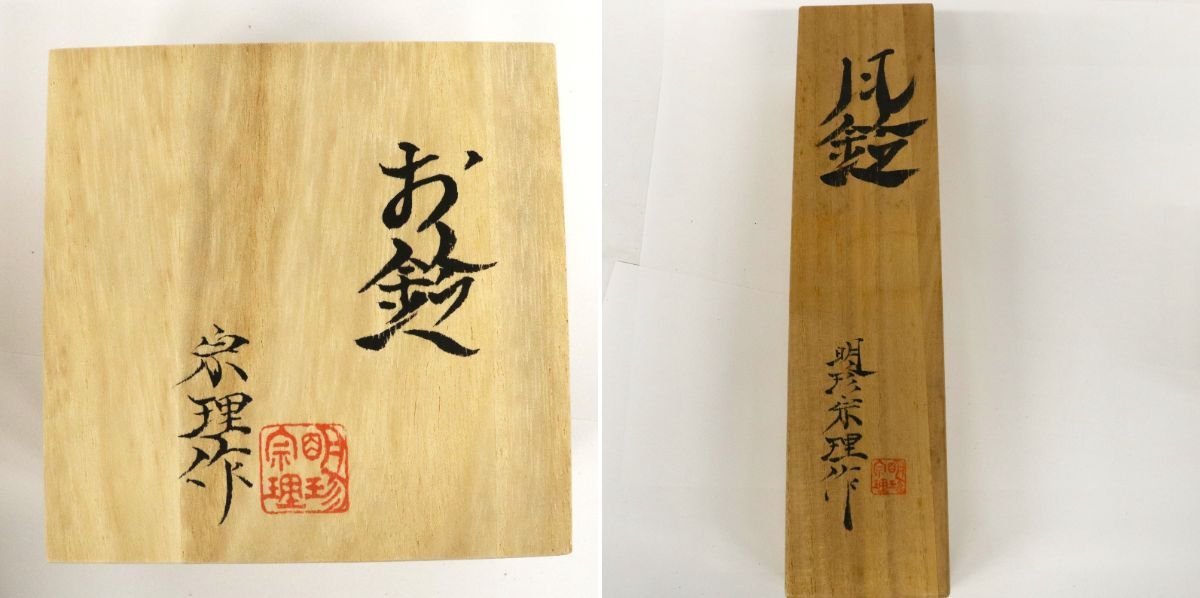 お鈴
宗理作
明珍
宗理
風鈴
明珍宗理作
明珍
宗理